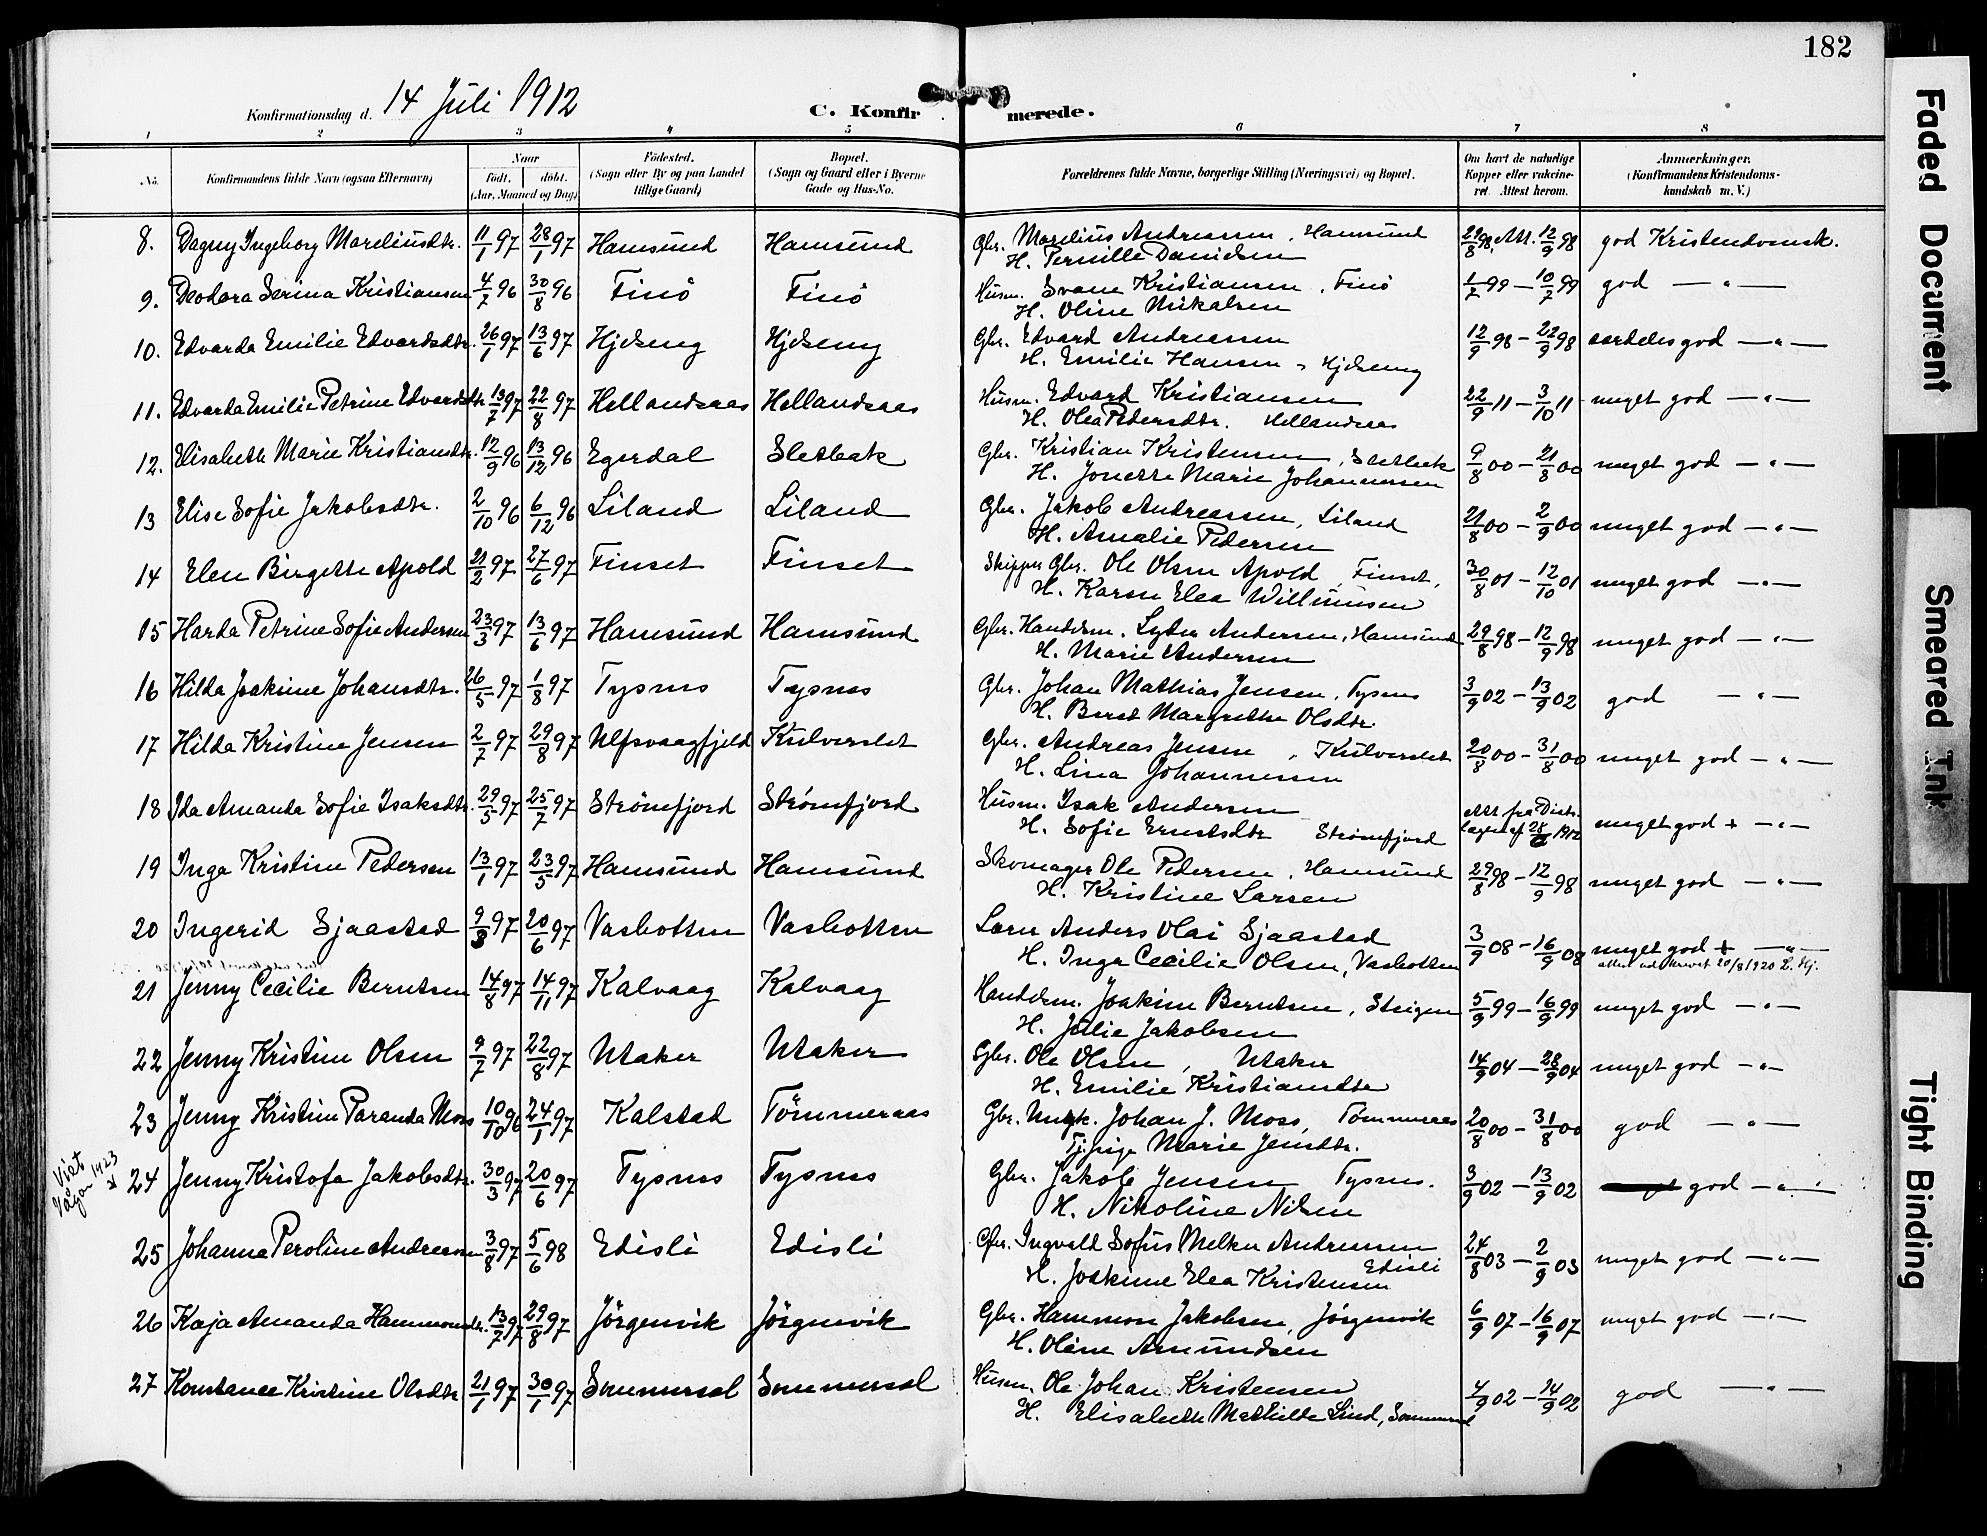 182
Konfirmationsdag d. 14 Juli 1912
C. Konfirmerede.
1 2 3 4 5 6 7 8
No. Konfirmandens fulde Navn (ogsaa Efternavn) Naar født. døbt. (Aar, Maaned og Dag) Fødested. (Sogn eller By og paa Landet tillige Gaard) Bopæl. (Sogn og Gaard eller i Byerne Gade og Hus-No. Forældrenes fulde Navne, borgerlige Stilling (Næringsvei) og Bopæl. Om havt de naturlige Kopper eller vaccineret. Attest herom. Anmærkninger. (Konfirmandens Kristendomskundskab m. V.)
8. Dagny Ingeborg Mareliusdtr. 11/1 97 28/1 97 Hamsund Hamsund Gbr. Marelius Andreassen, Hamsund 29/8 98, Att. 12/9 98 god Kristendomsk.
H. Pernille Danielsen
9. Deodora Serina Kristiansen 4/7 96 30/8 96 Finö Finö Husm. Svane Kristiansen, Finö 1/7 99 – 10/7 99 god — " —
H. Oline Mikalsen
10. Edvarda Emilie Edvardsdtr. 26/1 97 13/6 97 Hjelseng Hjelseng Gbr. Edvard Andreassen 12/9 98 – 22/9 98 særdeles god — " —
H. Emilie Hansen, Hjelseng
11. Edvarda Emilie Petrine Edvardsdtr 13/7 97 22/8 97 Hellandsaas Hellandsaas Husm. Edvard Kristiansen 22/9 11 – 3/10 11 meget god — " —
H. Olea Pedersdtr. Hellandsaas
12. Elisabeth Marie Kristiansdtr. 12/9 96 13/12 96 Egerdal Sletbak Gbr. Kristian Kristensen, Sletbak 9/8 00 – 21/8 00 meget god — " —
H. Jonette Marie Johannessen
13 Elise Sofie Jakobsdtr. 2/10 96 6/12 96 Liland Liland Gbr. Jakob Andreassen, Liland 21/8 00 – 2/9 00 meget god — " —
H. Amalie Pedersen
14 Elen Birgette Apold 21/2 97 27/6 97 Finset Finset Skipper Gbr. Ole Olsen Apold, Finset, 30/8 01 – 12/10 01 meget god — " —
H. Karen Elea Willumsen
15 Harda Petrine Sofie Andersen 23/3 97 13/6 97 Hamsund Hamsund Gbr. Handelsm. Lyder Andersen, Hamsund 29/8 98 – 12/9 98 meget god — " —
H. Marie Andersen
16 Hilda Joakime Johansdtr. 26/5 97 1/8 97 Tysnes Tysnes Gbr. Johan Mathias Jensen, Tysnes 3/9 02 – 13/9 02 god — " —
H. Beret Margrethe Olsdtr.
17 Hilda Kristine Jensen 2/7 97 29/8 97 Ulfsvaagfjeld Kulverslet Gbr. Andreas Jensen, Kulverslet 20/8 00 – 31/8 00 meget god — " —
H. Lina Johannessen
18 Ida Amanda Sofie Isaksdtr. 29/5 97 25/7 97 Strømefjord Strømfjord Husm. Isak Andersen Att. fra Distr. meget god + — " —
H. Sofie Ernstsdtr Strømefjord lægen af 28/6 1912
19 Inga Kristine Pedersen 13/1 97 23/5 97 Hamsund Hamsund Skomager Ole Pedersen, Hamsund 29/8 98 – 12/9 98 meget god — " —
H. Kristine Larsen
20 Ingerid Sjaastad 9/3 97 20/6 97 Vasbotten Vasbotten Lærer Anders Olai Sjaastad 3/9 08 – 16/9 08 meget god + — " —
H. Inga Cecilie Olsen, Vasbotten attest udskrevet 20/8 1920 L. Hj.
21 Jenny Cecilie Berntsen 14/8 97 14/11 97 Kalvaag Kalvaag Handelsm. Joakim Berntsen, Steigen 5/9 99 – 16/9 99 meget god — " —
H. Julie Jakobsen
22 Jenny Kristine Olsen 9/7 97 22/8 97 Utaker Utaker Gbr. Ole Olsen, Utaker 14/9 04 – 28/9 04 meget god — " —
H. Emilie Kristiansdtr
23 Jenny Kristine Paranda Moss 10/10 96 24/1 97 Kalstad Tömmeraas Gbr. Ungk. Johan J. Moss, Tømmeraas 20/8 00 – 31/8 00 god — " —
Tj.pige Marie Jensdtr.
Viet Vågan 1923
24 Jenny Kristofa Jakobsdtr. 30/3 97 20/6 97 Tysnes Tysnes Gbr. Jakob Jensen Tysnes. 3/9 02 – 13/9 02 god — " —
H. Nikoline Nilsen
25 Johanna Peroline Andreassen 3/8 97 5/6 98 Edisli Edisli Gbr. Ingvald Sofus Melker Andreassen 24/8 03 – 2/9 03 meget god — " —
Edisli
H. Joakime Elea Kristensen
26 Kaja Amanda Hammonsdtr. 13/7 97 29/8 97 Jörgenvik Jörgenvik Gbr. Hammon Jakobsen, Jörgenvik 6/9 07 – 16/9 07 meget god — " —
H. Oline Amundsen
27 Konstance Kristine Olsdtr 21/1 97 30/1 97 Sommersel Sommersel Husm. Ole Johan Kristensen 4/9 02 – 14/9 02 god — " —
H. Elisabeth Mathilde Lind, Sommersel
Faded Document
Smeared Ink
Tight Binding